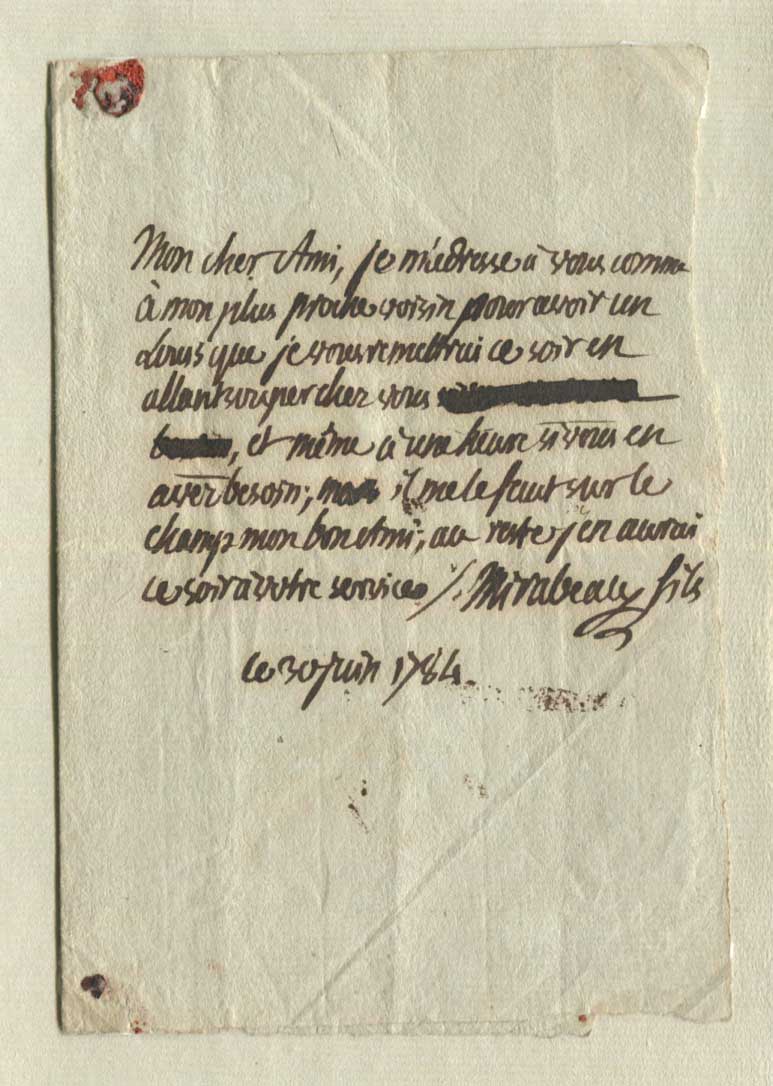 Mon cher Ami, je m'adresse à vous comme
à mon plus proche voisin pour avoir un
Louis que je vous remettrai ce soir en
allant souper chez vous
, et même à une heure si vous en
avez besoin; il me le faut sur le
champ mon bon Ami; au reste j'en aurai
ce soir à votre service /. Mirabeau fils
ce 30 juin 1784.